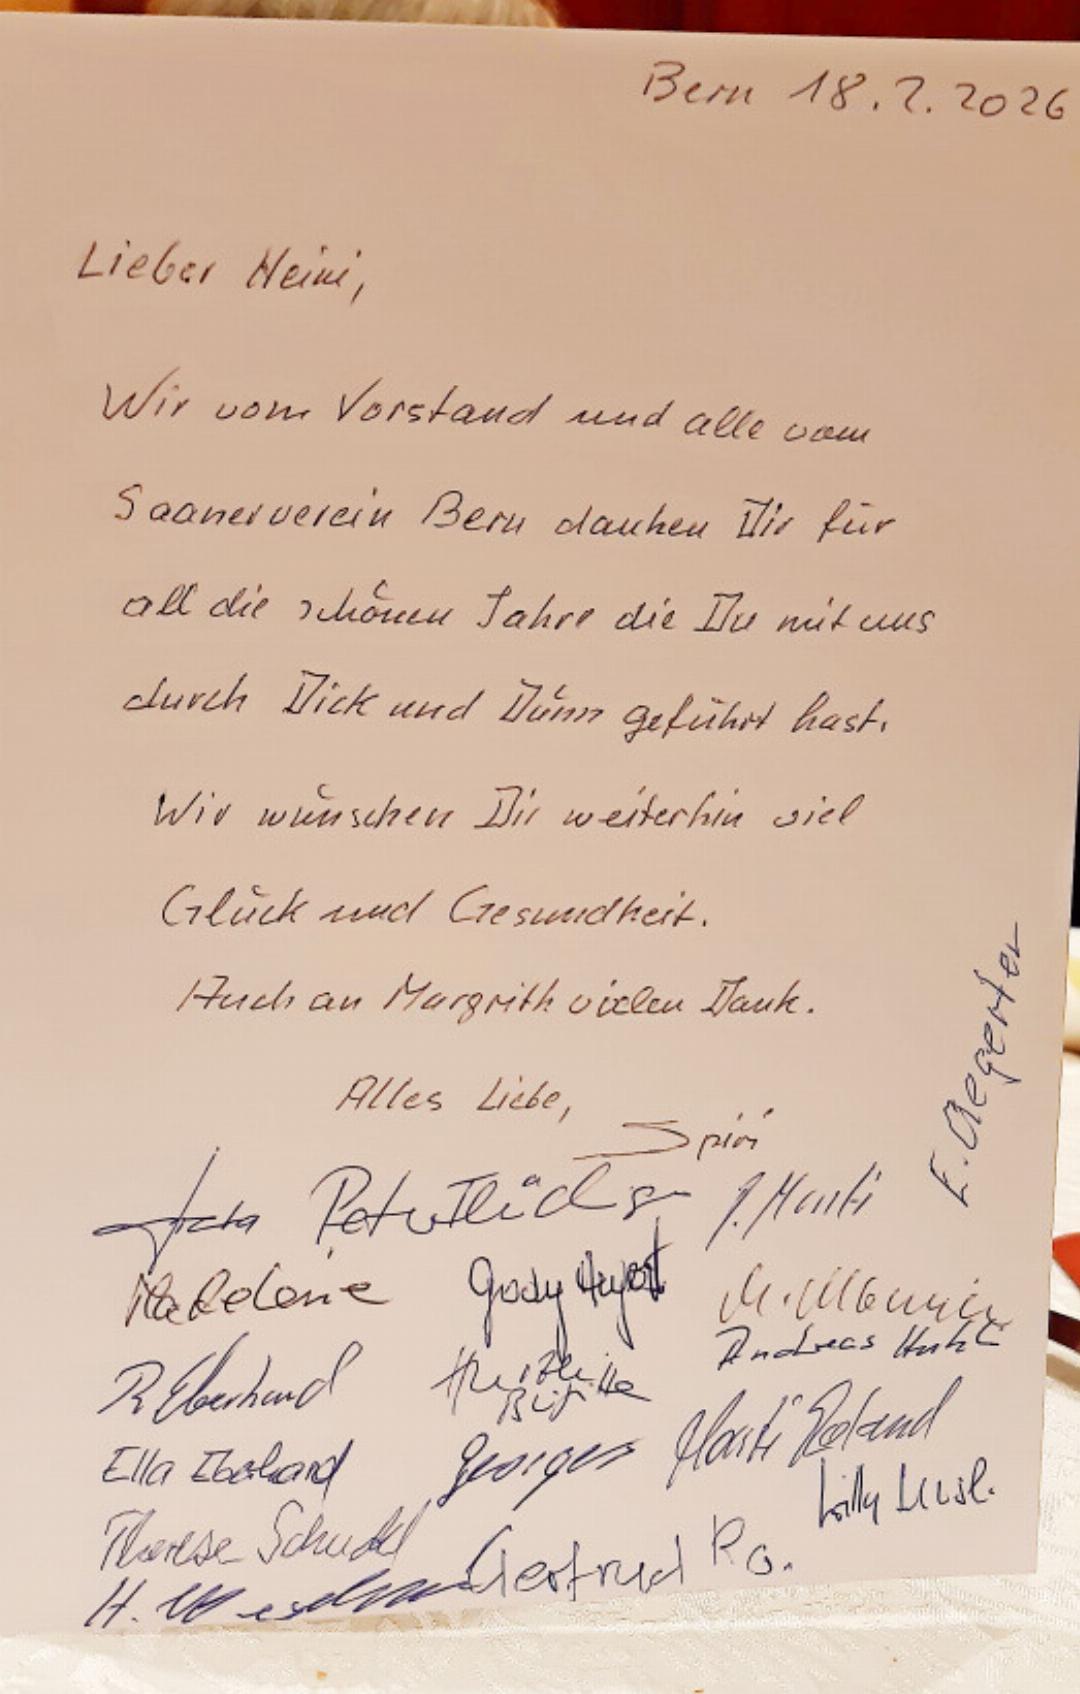 Bern 18.2.2026
Lieber Heini,
Wir vom Vorstand und alle vom
Saanerverein Bern danken Dir für
all die schönen Jahre die Du mit uns
durch Dick und Dünn geführt hast.
Wir wünschen Dir weiterhin viel
Glück und Gesundheit.
Auch an Margrith vielen Dank.
Alles Liebe,
Spiri
E. Aegerter
Peter
J. Marti
Madeleine
Gody
M.
Andreas
R Eberhard
Brigitte
Ella Eberhard
Georges
Marti Roland
Therese
Lilly
H.
Gertrud Ro.